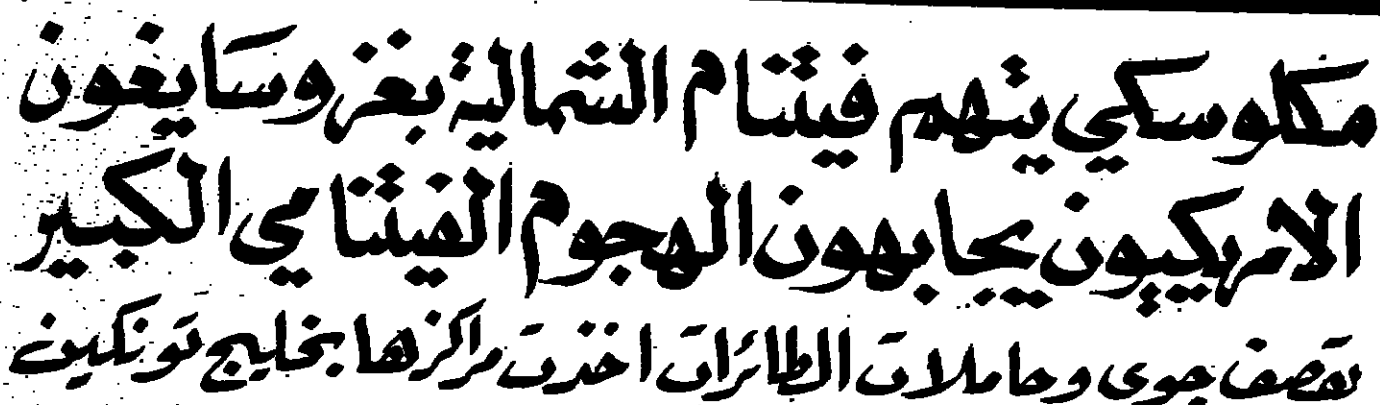 مكلوسكي يتهم فيتنام الشمالية بغزو سايغون
الامريكيون يجابهون الهجوم الفيتنامي الكبير
بقصف جوى وحاملات الطائرات اخذت مراكزها بخليج تونكين